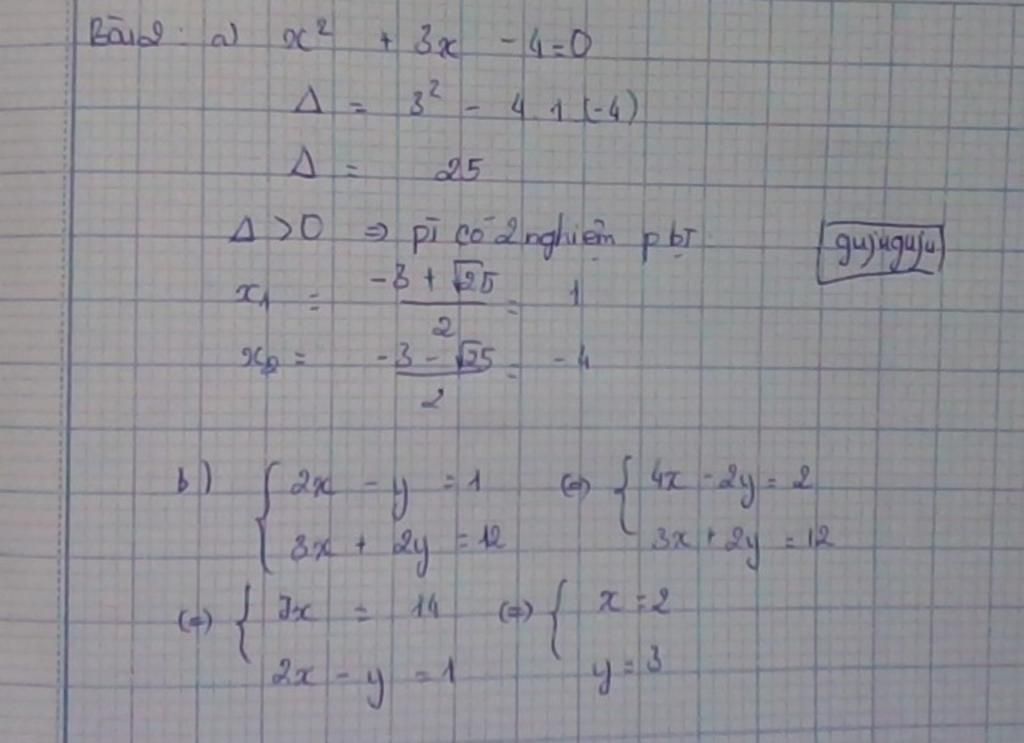 Bài 2: a) x² + 3x - 4 = 0
Δ = 3² - 4 1 (-4)
Δ = 25
Δ > 0 ⇒ pt có 2 nghiệm pbt
gujuguju
x₁ = (-3 + √25)/2 = 1
x₂ = (-3 - √25)/2 = -4
b) { 2x - y = 1 (⇔) { 4x - 2y = 2
3x + 2y = 12 3x + 2y = 12
(⇔) { 7x = 14 (⇔) { x = 2
2x - y = 1 y = 3